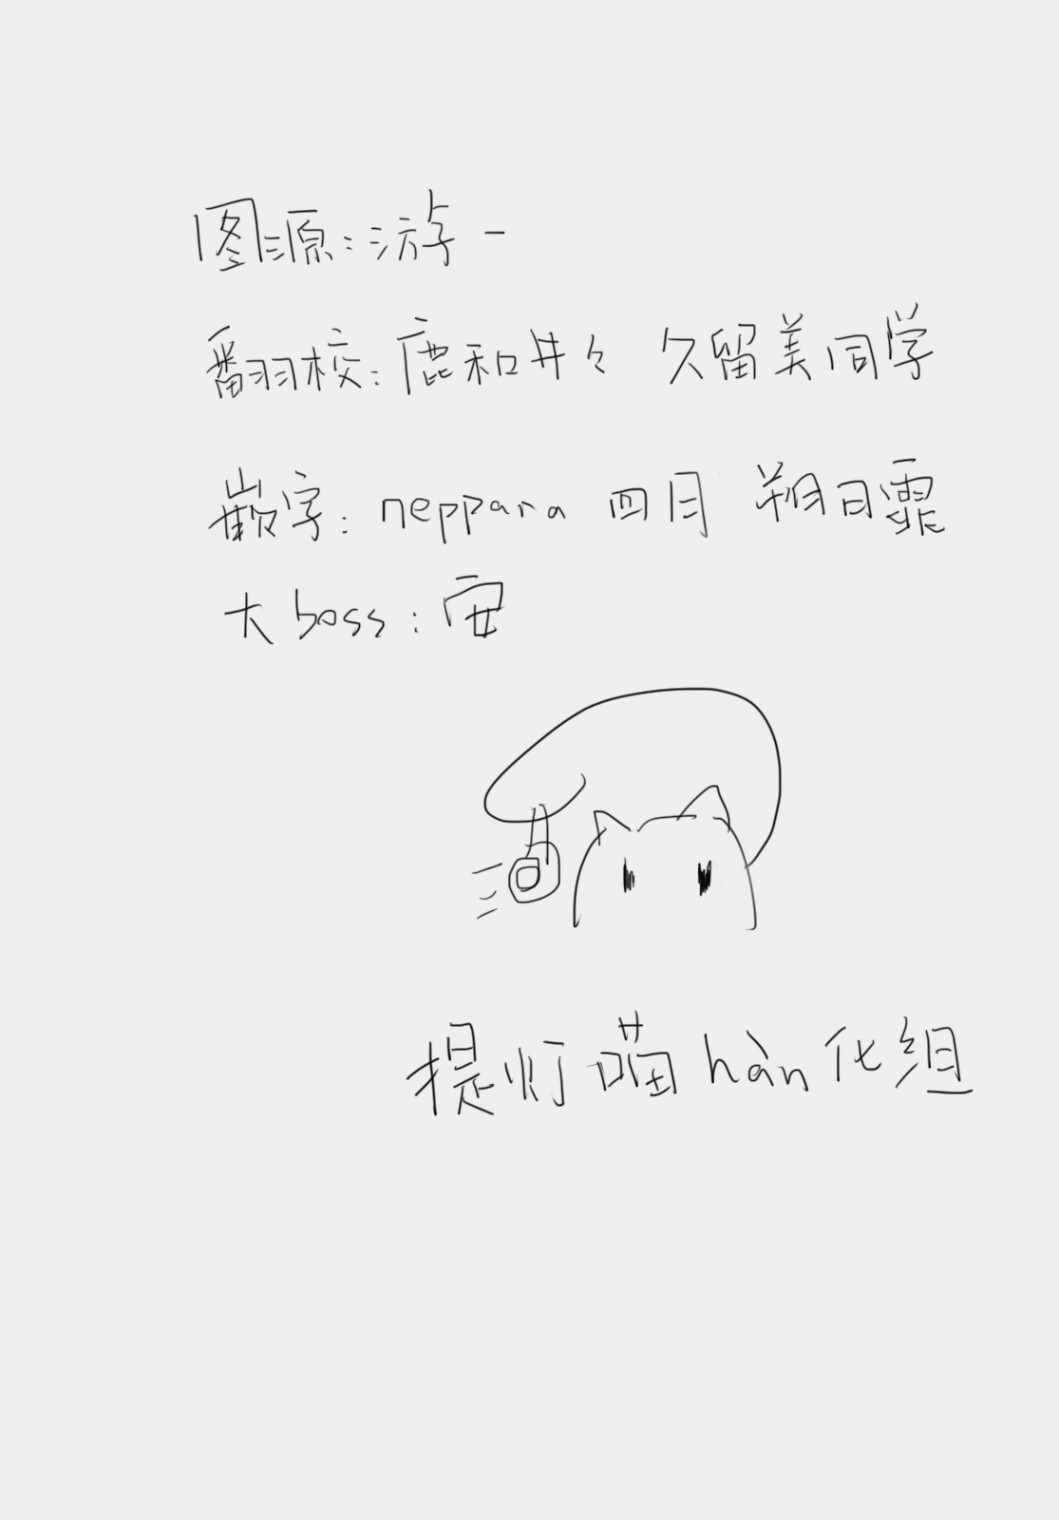 图源：游一
翻校：鹿和井々 久留美同学
嵌字：neppara 四月 朔日霏
大boss：安
提灯喵hàn化组